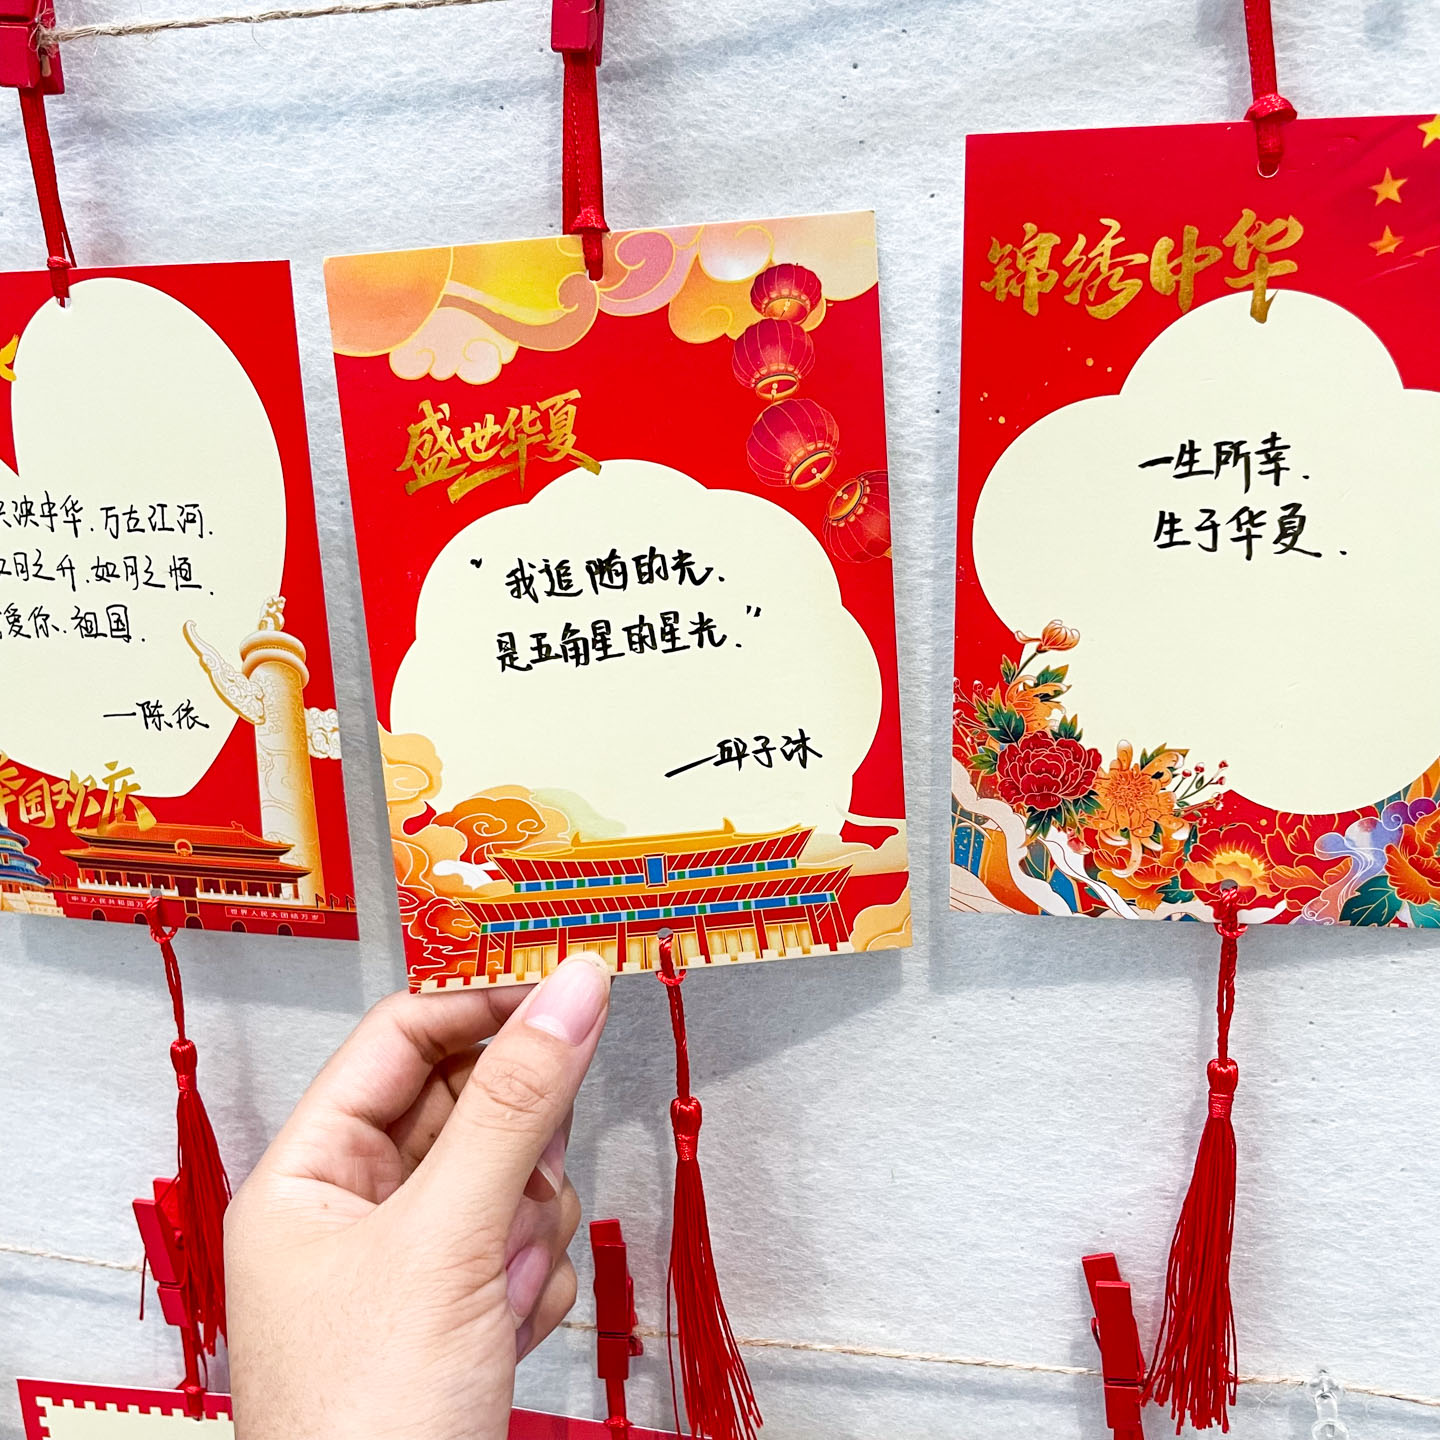 泱中华.万古江河.
如月之恒.
爱你.祖国.
—陈依
国欢庆
中华人民共和国万
世界人民大团结万岁
盛世华夏
“我追随的光.
是五角星的星光.”
—邱子沐
锦绣中华
一生所幸.
生于华夏.